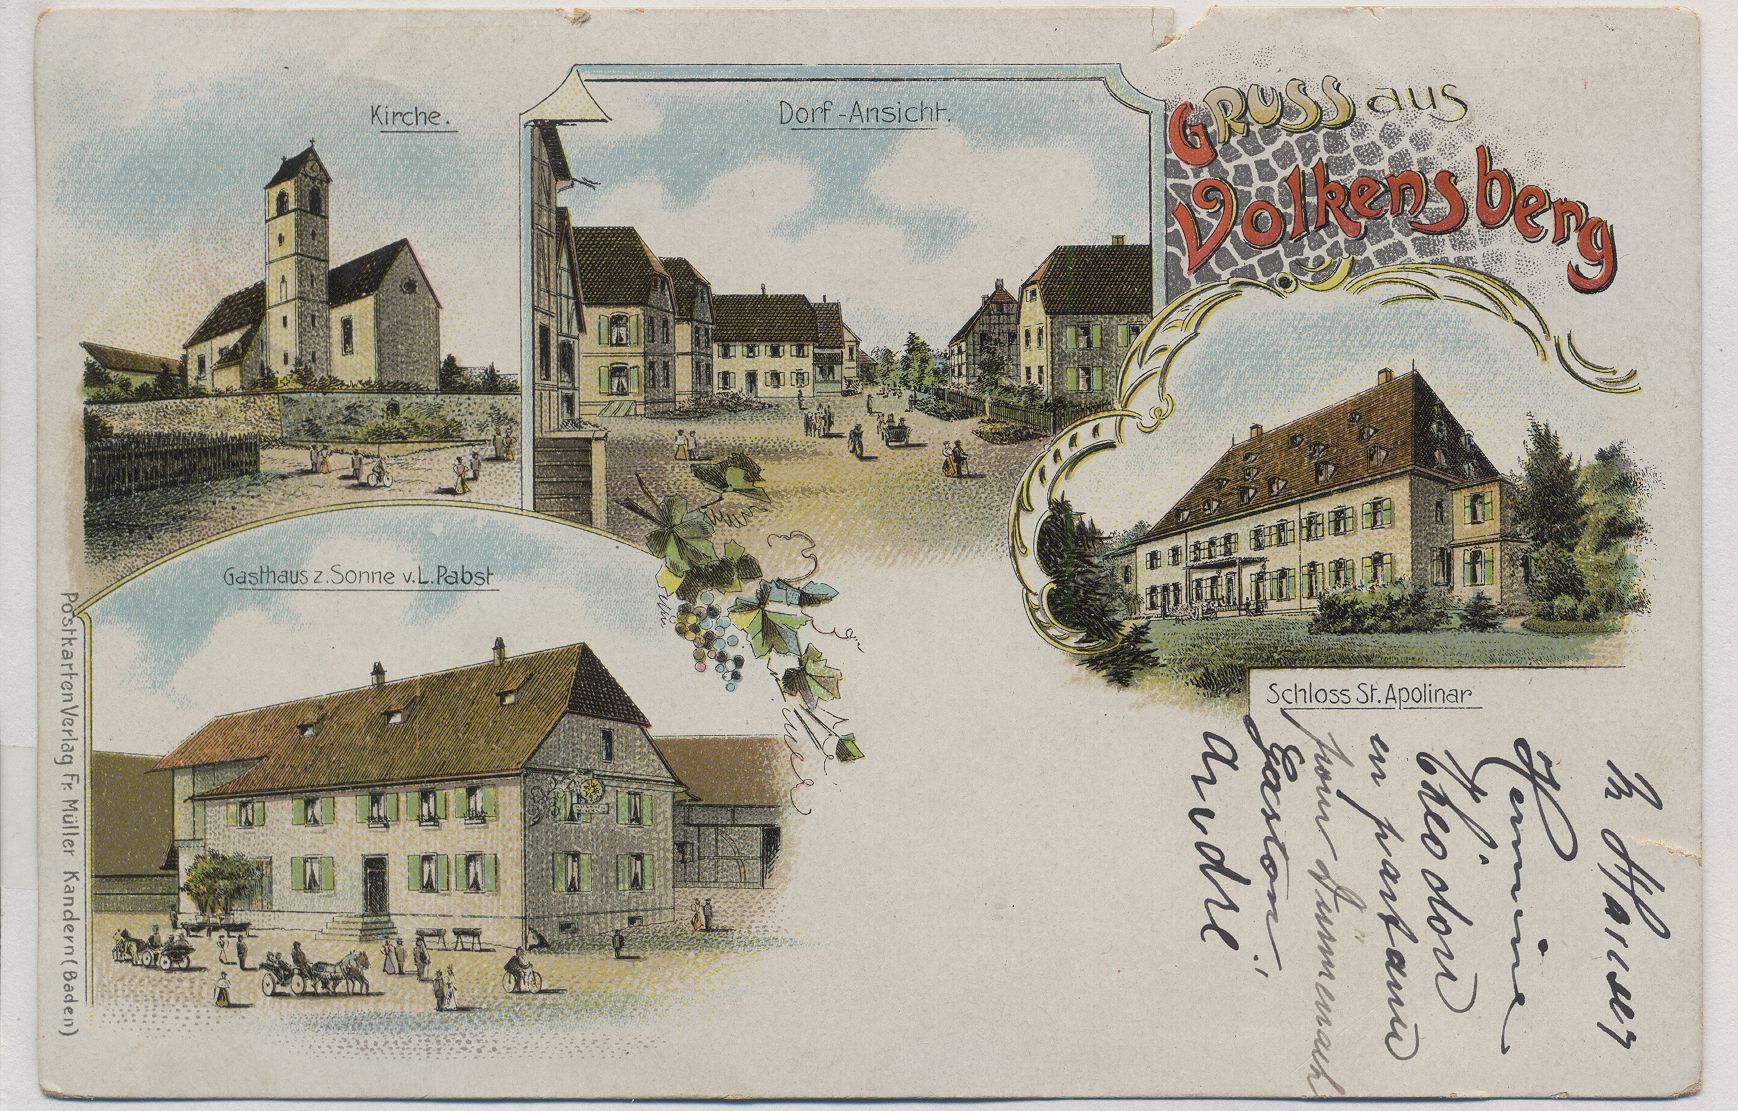 Kirche.
Dorf-Ansicht.
Gruss aus
Volkensberg
Gasthaus z. Sonne v. L. Pabst
Schloss St. Apolinar
Postkarten Verlag Fr. Müller Kandern (Baden)
Hermine
Théodor
en partant
pour
Gaston
André